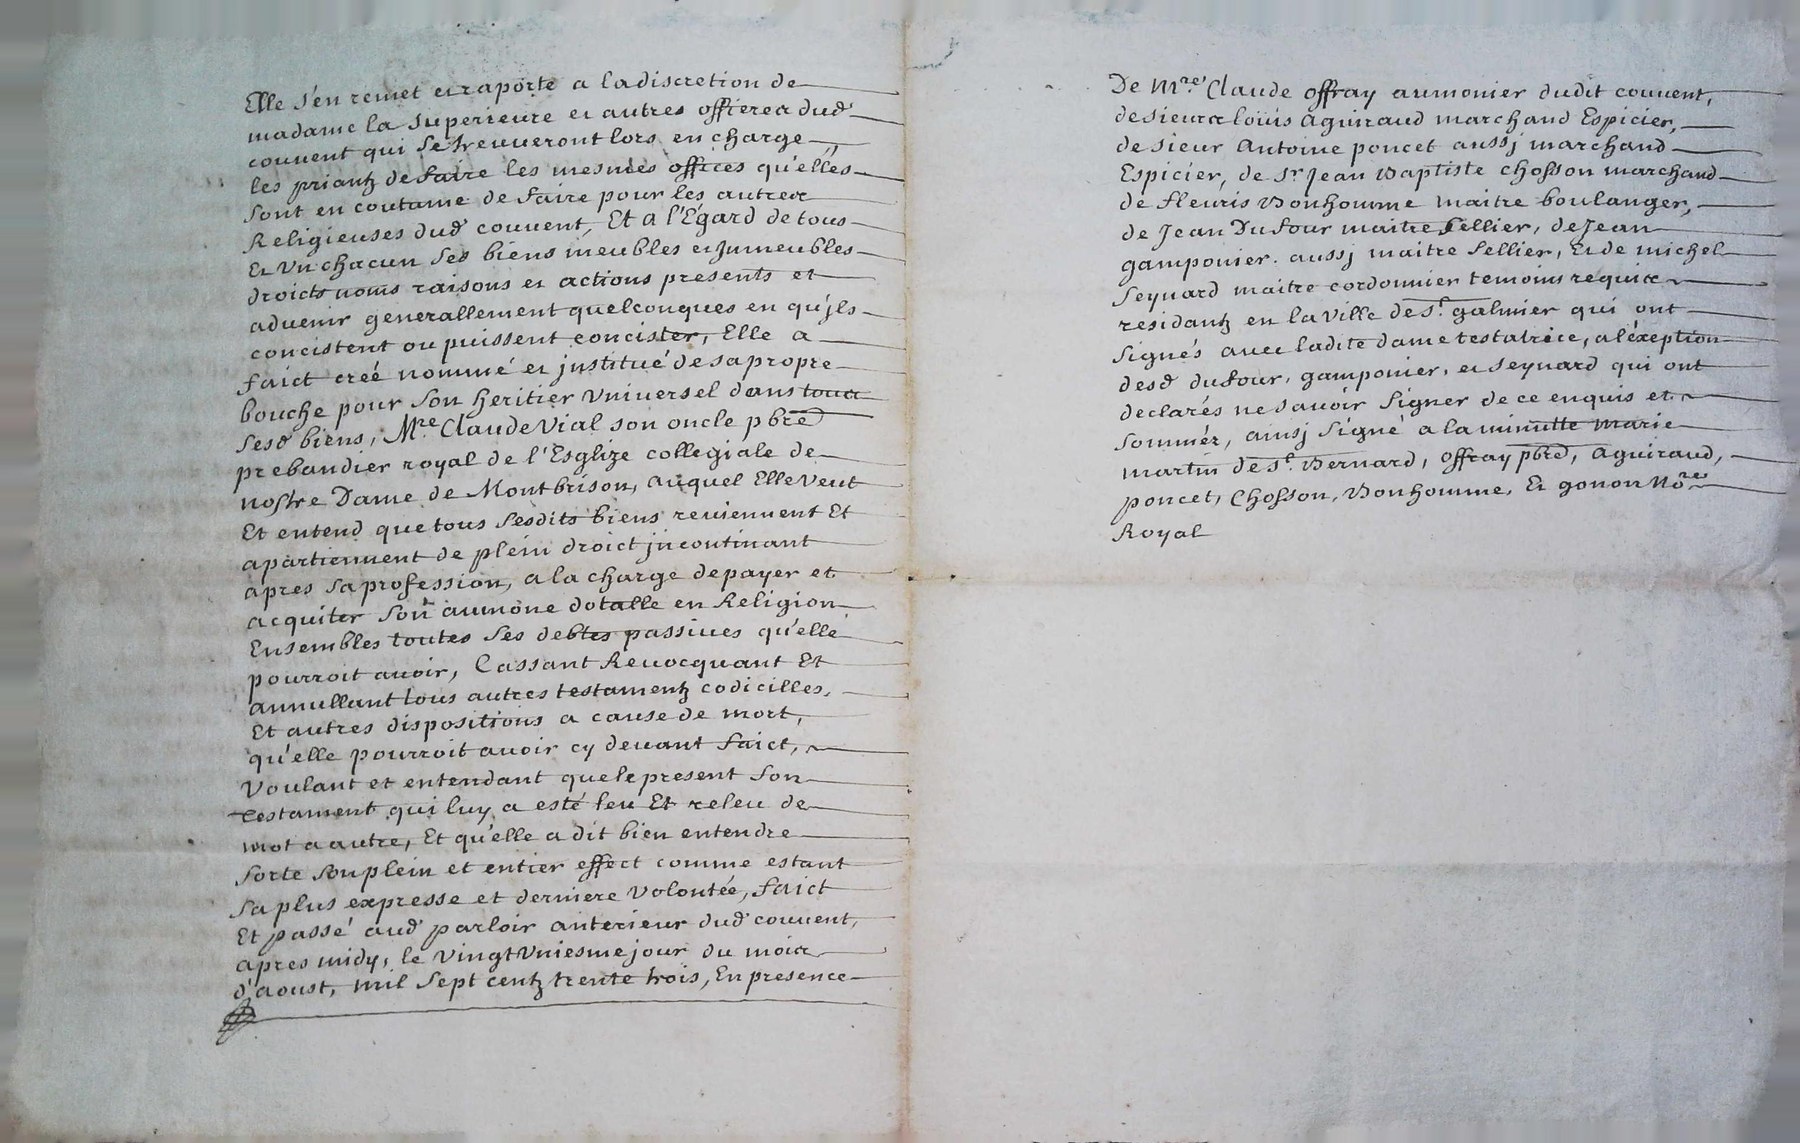 Elle s'en remet et raporte a la discretion de
madame la superieure et autres officieres dud
couvent qui se treuveront lors en charge,
les priantz de faire les mesmes offices qu'elles
sont en coutume de faire pour les autres
Religieuses dud couvent, Et a l'Egard de tous
Et Un chacun ses biens meubles et Jmmeubles
droicts noms raisons et actions presents et
advenir generallement quelconques en qu'jls
concistent ou puissent concister, Elle a
faict creé nommé et jnstitué de sa propre
bouche pour son heritier Universel dans tous
sesd biens, Mre Claude Vial son oncle pbre
prebandier royal de l'Esglize collegiale de
nostre Dame de Montbrison, auquel Elle Veut
Et entend que tous sesdits biens reviennent Et
apartiennent de plein droict jncontinant
apres sa profession, a la charge de payer et
acquiter son aumône dotalle en Religion
Ensembles toutes ses debtes passives qu'elle
pourroit avoir, Cassant Revocquant Et
annullant tous autres testamentz codicilles,
Et autres dispositions a cause de mort,
qu'elle pourroit avoir cy devant faict,
Voulant et entendant que le present son
testament qui luy a esté leu Et releu de
mot a autre, Et qu'elle a dit bien entendre
sorte son plein et entier effect comme estant
sa plus expresse et derniere Volontée, faict
Et passé aud parloir anterieur dud couvent,
apres midy, le Vingt Uniesme jour du mois
d'aoust, mil sept centz trente trois, En presence
De Mre Claude offray aumonier dudit couvent,
de sieurs loüis aguiraud marchand Espicier,
de sieur Antoine poncet aussj marchand
Espicier, de Sr Jean Baptiste Chosson marchand
de fleuris Bonhomme maitre boulanger,
de Jean Dufour maitre sellier, de Jean
gamponier aussj maitre sellier, Et de michel
seynard maitre cordonnier temoins requis
residantz en la Ville de St galmier qui ont
signés avec ladite dame testatrice, a l'éxeption
desd dufour, gamponier, et seynard qui ont
declarés ne savoir signer de ce enquis et
sommés, ainsj signé a la minutte marie
martin de St Bernard, offray pbre, aguiraud,
poncet, Chosson, Bonhomme, Et gonon Nore
Royal